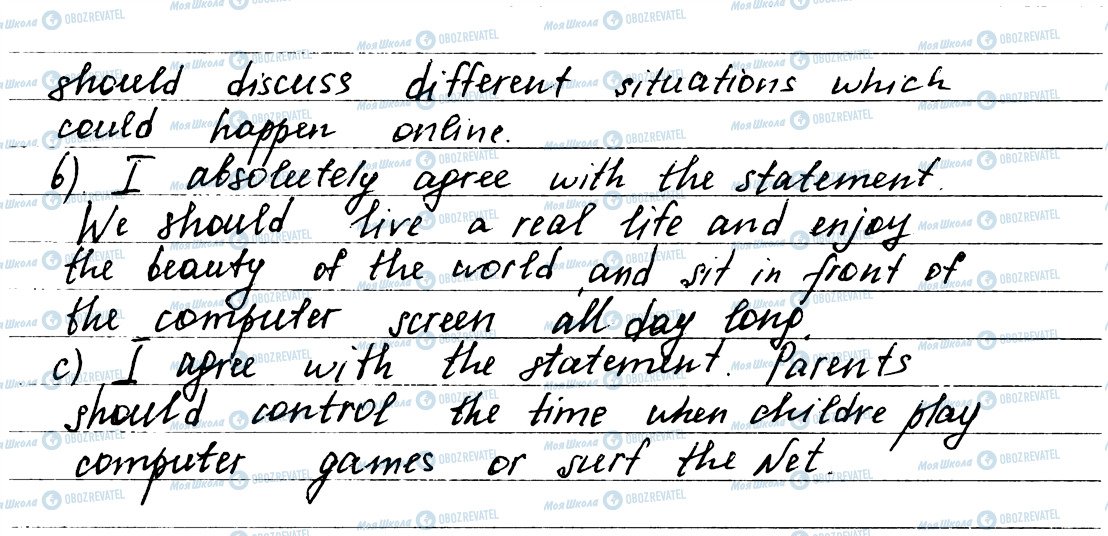 should discuss different situations which
could happen online.
b) I absolutely agree with the statement.
We should live a real life and enjoy
the beauty of the world and sit in front of
the computer screen all day long.
c) I agree with the statement. Parents
should control the time when childre play
computer games or surf the Net.